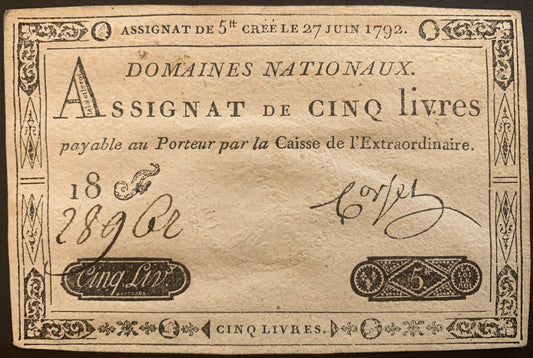 ASSIGNAT DE 5tt CRÉÉ LE 27 JUIN 1792.
DOMAINES NATIONAUX.
ASSIGNAT DE CINQ livres
payable au Porteur par la Caisse de l'Extraordinaire.
18
28962
Corsel
Cinq Liv.s
5tt
LA LOI LE ROI
CINQ LIVRES.